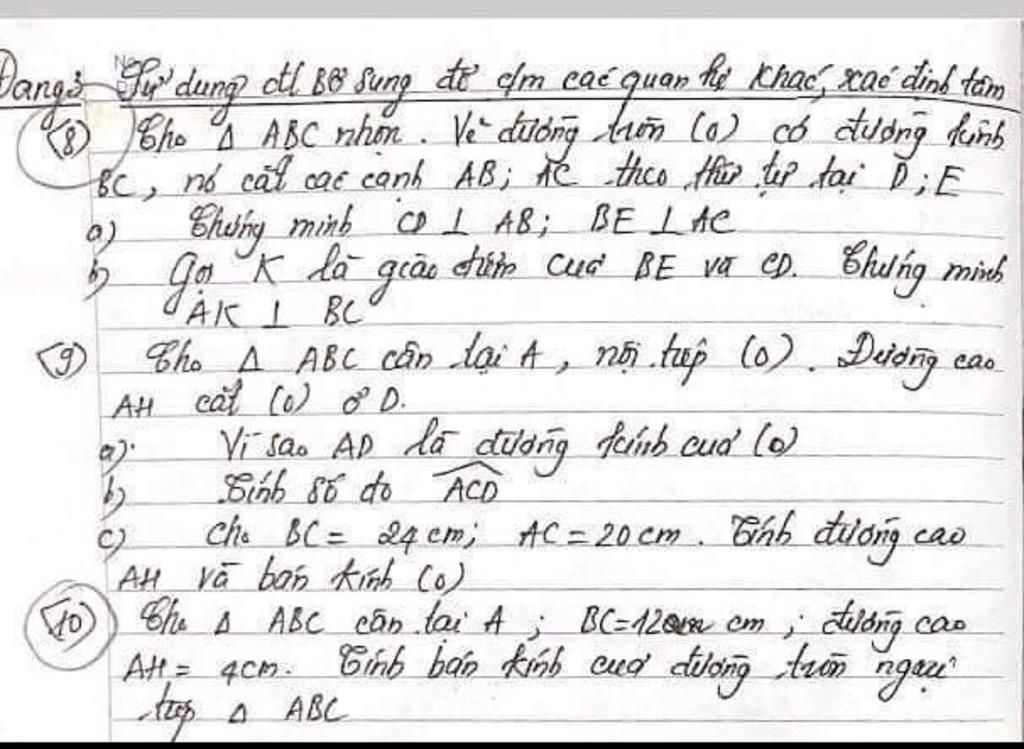 Dạng 3 Sử dụng đl Bổ Sung để c/m các quan hệ khác, xác định tâm
(8) Cho Δ ABC nhọn. Vẽ đường tròn (O) có đường kính
BC, nó cắt các cạnh AB; AC theo thứ tự tại D; E
a) Chứng minh CD ⊥ AB; BE ⊥ AC
b) Gọi K là giao điểm của BE và CD. Chứng minh
AK ⊥ BC
(9) Cho Δ ABC cân tại A, nội tiếp (O). Đường cao
AH cắt (O) ở D.
a) Vì sao AD là đường kính của (O)
b) Tính số đo ACD
c) Cho BC = 24 cm; AC = 20 cm. Tính đường cao
AH và bán kính (O)
(10) Cho Δ ABC cân tại A; BC = 12 cm; đường cao
AH = 4cm. Tính bán kính của đường tròn ngoại
tiếp Δ ABC